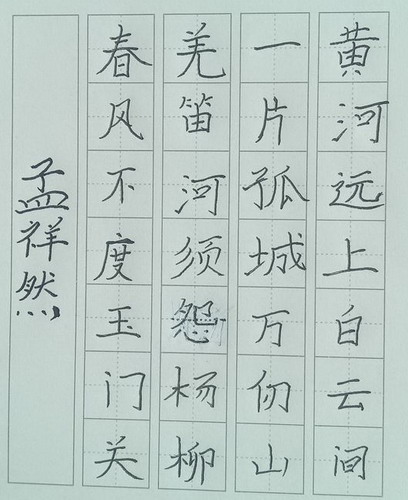 黄河远上白云间
一片孤城万仞山
羌笛河须怨杨柳
春风不度玉门关
孟祥然